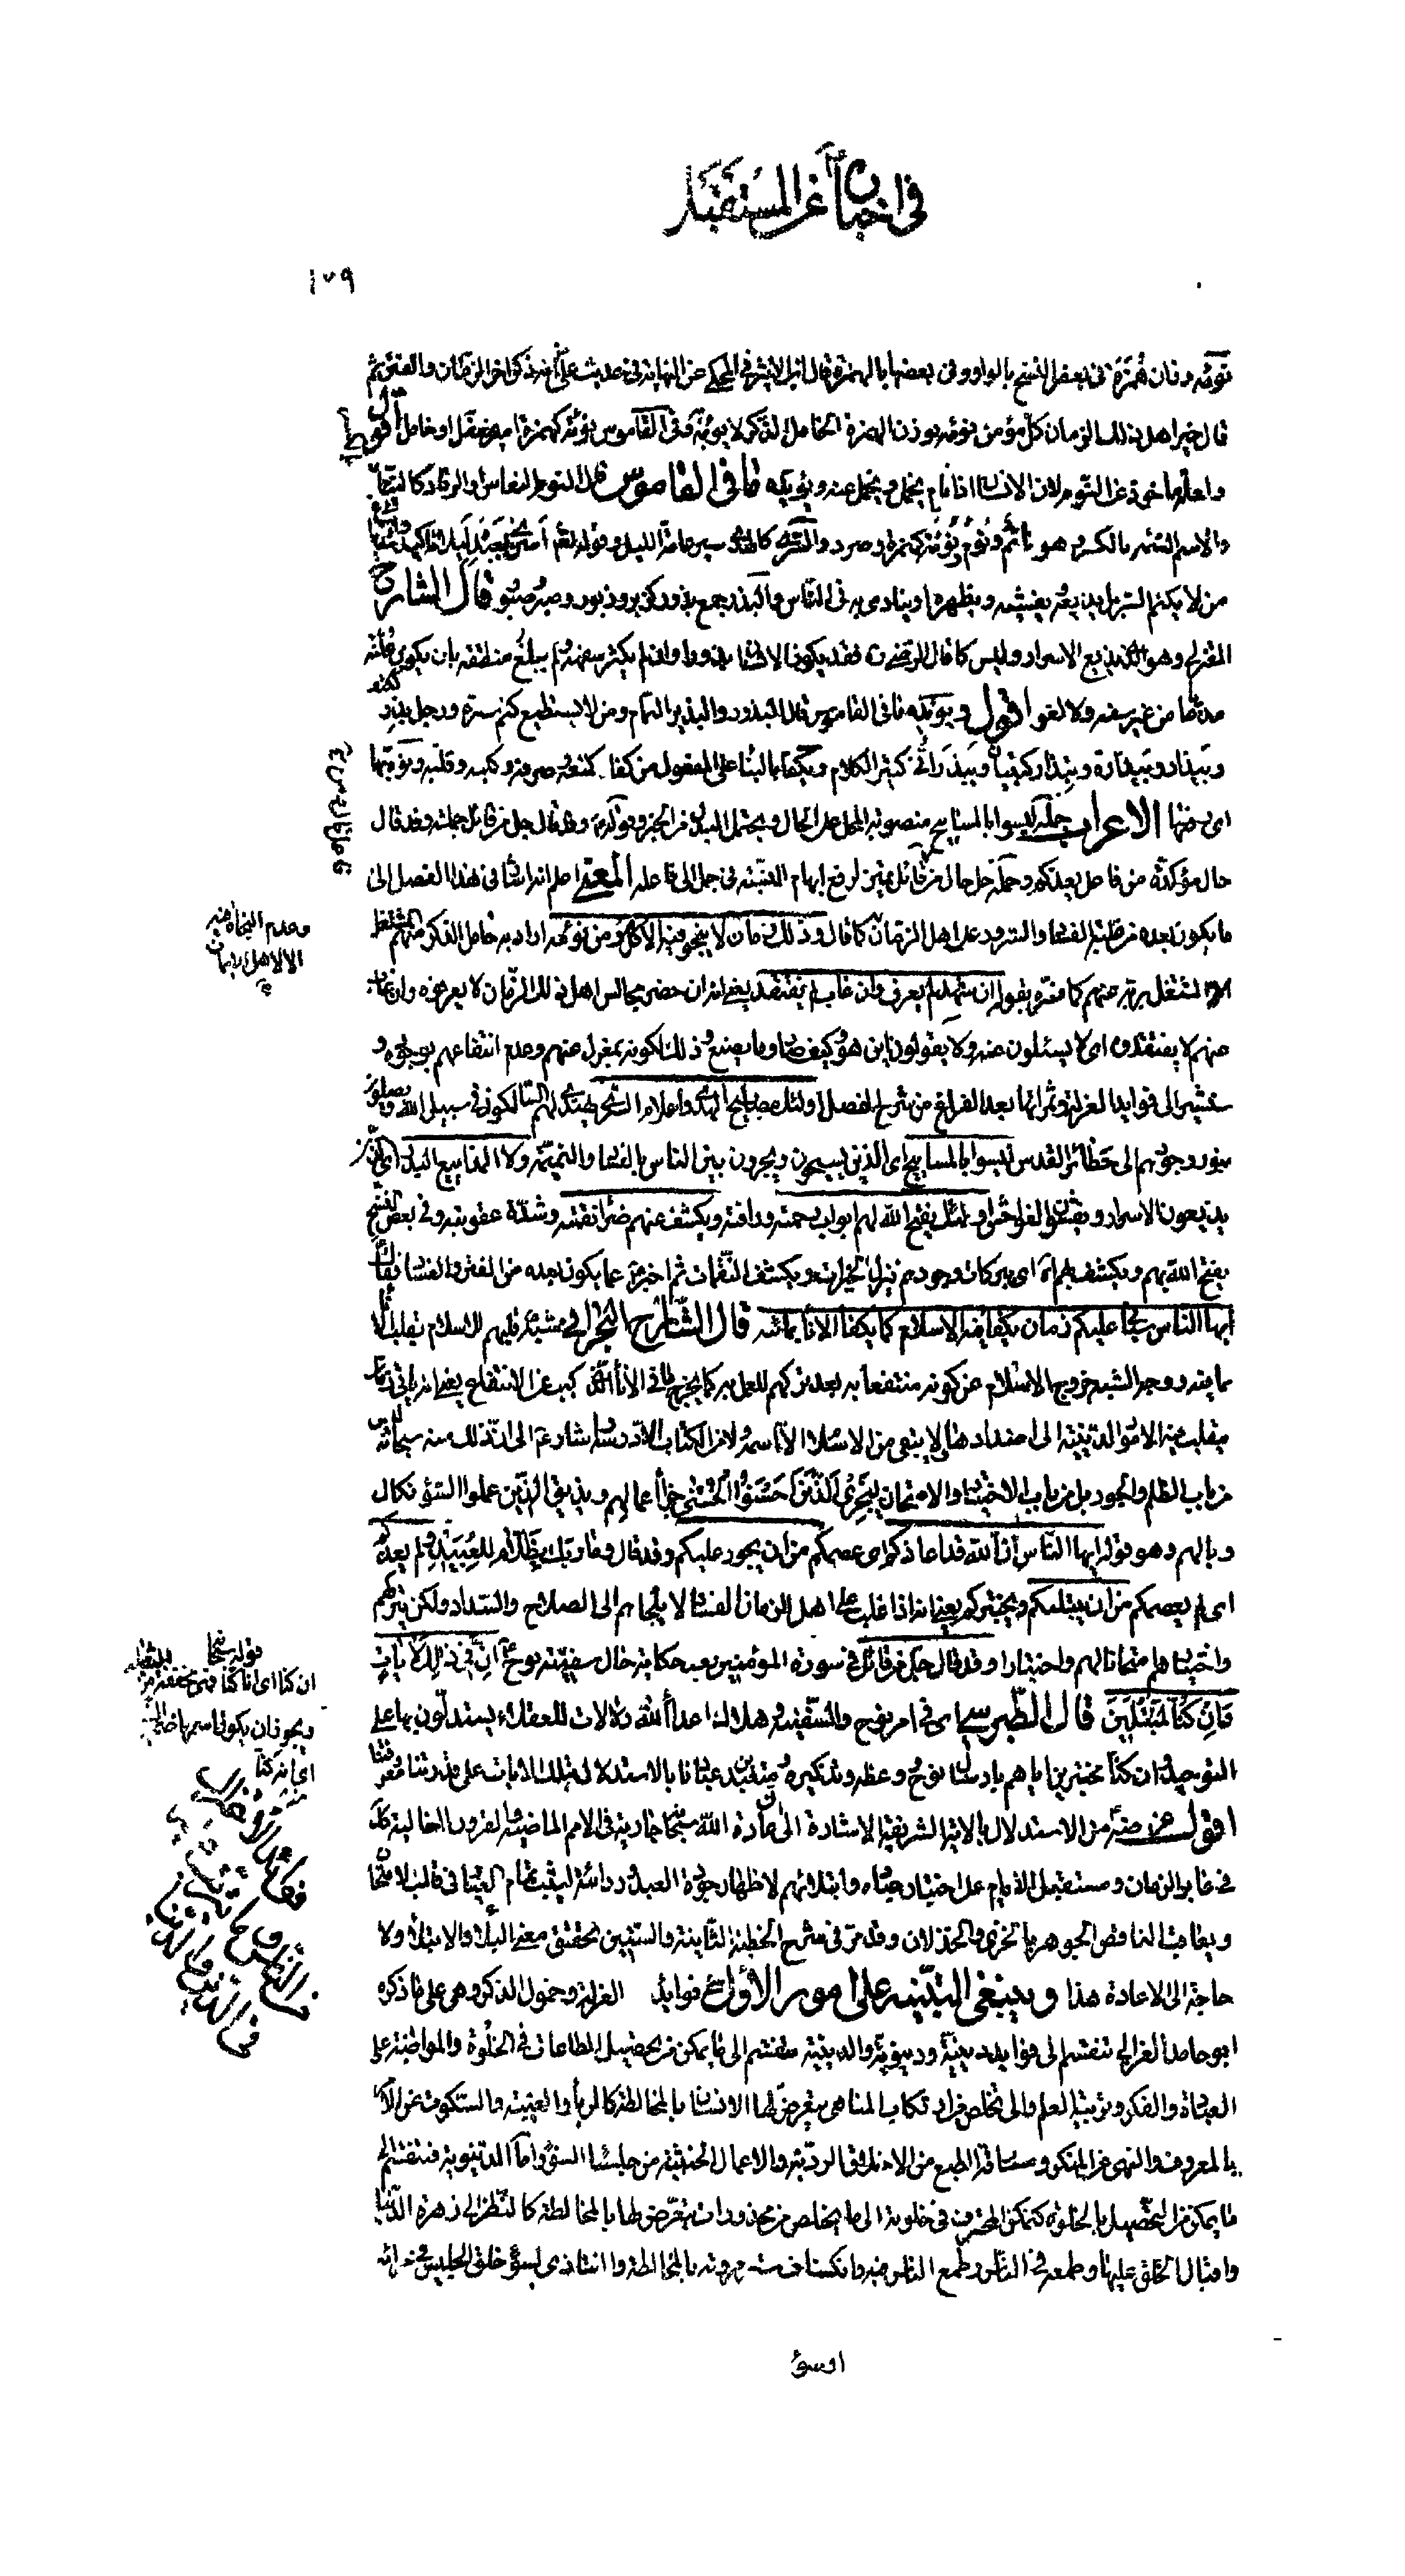 في اخباره عن المستقبل
١٧٩
نومة وزان همزة في بعض النسخ بالواو وفي بعضها بالهمزة قال ابن الاثير في المحكي عن النهاية في حديث علي انه ذكر آخر الزمان والفتن ثم
قال خير اهل ذلك الزمان كل مؤمن نومة بوزن الهمزة الخامل الذكر لا يؤبه وفي القاموس نومة كهمزة امير مغفل او خامل اقول
ولعله ماخوذ من النوم لان الانسان اذا نام يخمل ويخمل عنه ويؤيده ما في القاموس قال النوم النعاس او الرقاد كالنيام
والاسم النيمة بالكسر وهو نائم ونؤم ونومة كهمزة وصرد والسرى كالهدى سير عامة الليل وقوله تعالى أسرى بعبده ليلا تأكيد
من لا يكتم السر بل يذيعه يفشيه ويظهره او ينادي به في الناس والبذر جمع بذور كزبر وزبور وصبر صبور قال الشارح
المعتزلي وهو الذي يذيع الاسرار وليس كما قال الرضي ره فقد يكون الانسان بذورا وان لم يكثر سفهه ولم يبلغ منطقه بان يكون علنة
مذياعا من غير سفه ولا لغو اقول ويؤيده ما في القاموس قال البذور والبذير النمام ومن لا يستطيع كتم سره ورجل بذر
وبيذار وبيذارة وتبذار كتبيان وبيذراني كثير الكلام ويكفأ بالبناء على المفعول من كفأ كمنعه صرفه وكبه وقلبه
الاعراب جملة ليسوا بالمسابيح منصوبة المحل على الحال ويحتمل البدل من الخبر وقد قال جل من قائل جملة وقد قال
حال مؤكدة من فاعل يعذكم وجملة جل حال من قائل تمييز لرفع ابهام النسبة في جل الى فاعله المعنى اعلم انه اشار في هذا الفصل الى
ما يكون بعده من غلبة الفساد والشرور على اهل الزمان كما قال وذلك زمان لا ينجو فيه الا كل مؤمن نومة اراد به خامل الذكر
المشتغل بربه عنهم كما فسره بقوله ان شهد لم يعرف وان غاب لم يفتقد يعني انه ان حضر مجالس اهل ذلك الزمان لا يعرفوه وان غاب
عنهم لا يفتقدوه اي لا يسئلون عنه ولا يقولون اين هو وكيف صار وما يصنع وذلك لكونه بمعزل عنهم وعدم انتفاعهم بوجوده و
ستشير الى فوايد العزلة وثمراتها بعد الفراغ من شرح الفصل اولئك مصابيح الهدى واعلام السرى يهتدى بهم السالكون في سبيل الله ويصلون
بنور وجودهم الى حظائر القدس ليسوا بالمسابيح اي الذين يسيحون ويجرون بين الناس بالفساد والنميمة ولا المذاييع البذر اي الذين
يذيعون الاسرار ويفشون الفواحش اولئك يفتح الله لهم ابواب رحمته ورافته ويكشف عنهم ضراء نقمته وشدة عقوبته وفي بعض النسخ
يفتح الله بهم ويكشف بهم آه اي ببركات وجودهم تنزل الخيرات وتكشف النقمات ثم اخبر عما يكون بعده من الفتن والفساد فقال
ايها الناس سيأتي عليكم زمان يكفأ فيه الاسلام كما يكفأ الاناء بما فيه قال الشارح البحراني شبه قلبهم للاسلام بقلب الاناء
بما فيه ووجه الشبه خروج الاسلام عن كونه منتفعا به بعد تركهم للعمل به كما يخرج ما في الاناء الذي كب عن الانتفاع يعني انه ياتي زمان
ينقلب فيه الامور الدينية الى اضدادها ولا يبقى من الاسلام الا اسمه ولا من الكتاب الا درسه ثم اشار الى ان ذلك منه سبحانه ليس
من باب الظلم والجور بل من باب الاختبار والامتحان ليجزي الذين احسنوا الحسنى جزاء اعمالهم ويذيق الذين عملوا السوء نكال
وبالهم وهو قوله ايها الناس ان الله قد اعاذكم اي عصمكم من ان يجور عليكم وقد قال وما ربك بظلام للعبيد ولم يعذكم
اي لم يعصمكم من ان يبتليكم ويختبركم يعني انه اذا غلب على اهل الزمان الفساد لا يلجاهم الى الصلاح والسداد ولكن يتركهم
واختيارهم امتحانا لهم واختبارا وقد قال جل من قائل في سورة المؤمنين بعد حكاية حال سفينة نوح ان في ذلك لآيات
وان كنا لمبتلين قال الطبرسي اي في امر نوح والسفينة وهلاك اعداء الله دلالات للعقلاء يستدلون بها على
التوحيد وان كنا مختبرين اياهم بارسال نوح ووعظه وتذكيره ومتعبدين عبادنا بالاستدلال بتلك الايات على قدرتنا ومعرفتنا
اقول غرضه من الاستدلال بالآية الشريفة الاشارة الى ان عادة الله سبحانه جارية في الامم الماضية والقرون الخالية كل
في غابر الزمان ومستقبل الايام على اختبار عباده وابتلائهم لاظهار جودة العبد وردائته ليثبت تمام العيار في قالب الامتحان
ويعاقب الناقص الجوهر بالخزي والخذلان وقد مر في شرح الخطبة الثانية والستين تحقيق معنى البلاء والابتلاء ولا
حاجة الى الاعادة هذا وينبغي التنبيه على امور الاول في فوايد العزلة وخمول الذكر وهي على ما ذكره
ابو حامد الغزالي تنقسم الى فوايد دينية ودنيوية والدينية تنقسم الى ما يمكن من تحصيل الطاعات في الخلوة والمواظبة على
العبادة والفكر وتربية العلم والى تخلص من ارتكاب المناهي يتعرض لها الانسان بالمخالطة كالرياء والغيبة والسكوت عن الامر
بالمعروف والنهي عن المنكر ومسارقة الطبع من الاخلاق الردية والاعمال الخبيثة من جلساء السوء واما الدنيوية فتنقسم الى
ما يمكن من التحصيل بالخلوة كتمكن المحترف في خلوته الى ما يخلص من محذورات يتعرض لها بالمخالطة كالنظر الى زهرة الدنيا
واقبال الخلق عليها وطمعه في الناس وطمع الناس فيه وانكشاف ستر مروته بالمخالطة والتاذي بسوء خلق الجليس في مرائه
او سوء
وعدم النجاة فيه
الا لاهل الايمان
قوله سبحانه
ان كنا اي انا كنا فهي مخففة من المثقلة
ويجوز ان يكون اسمها ضمير الشان
اي انه كنا
منه